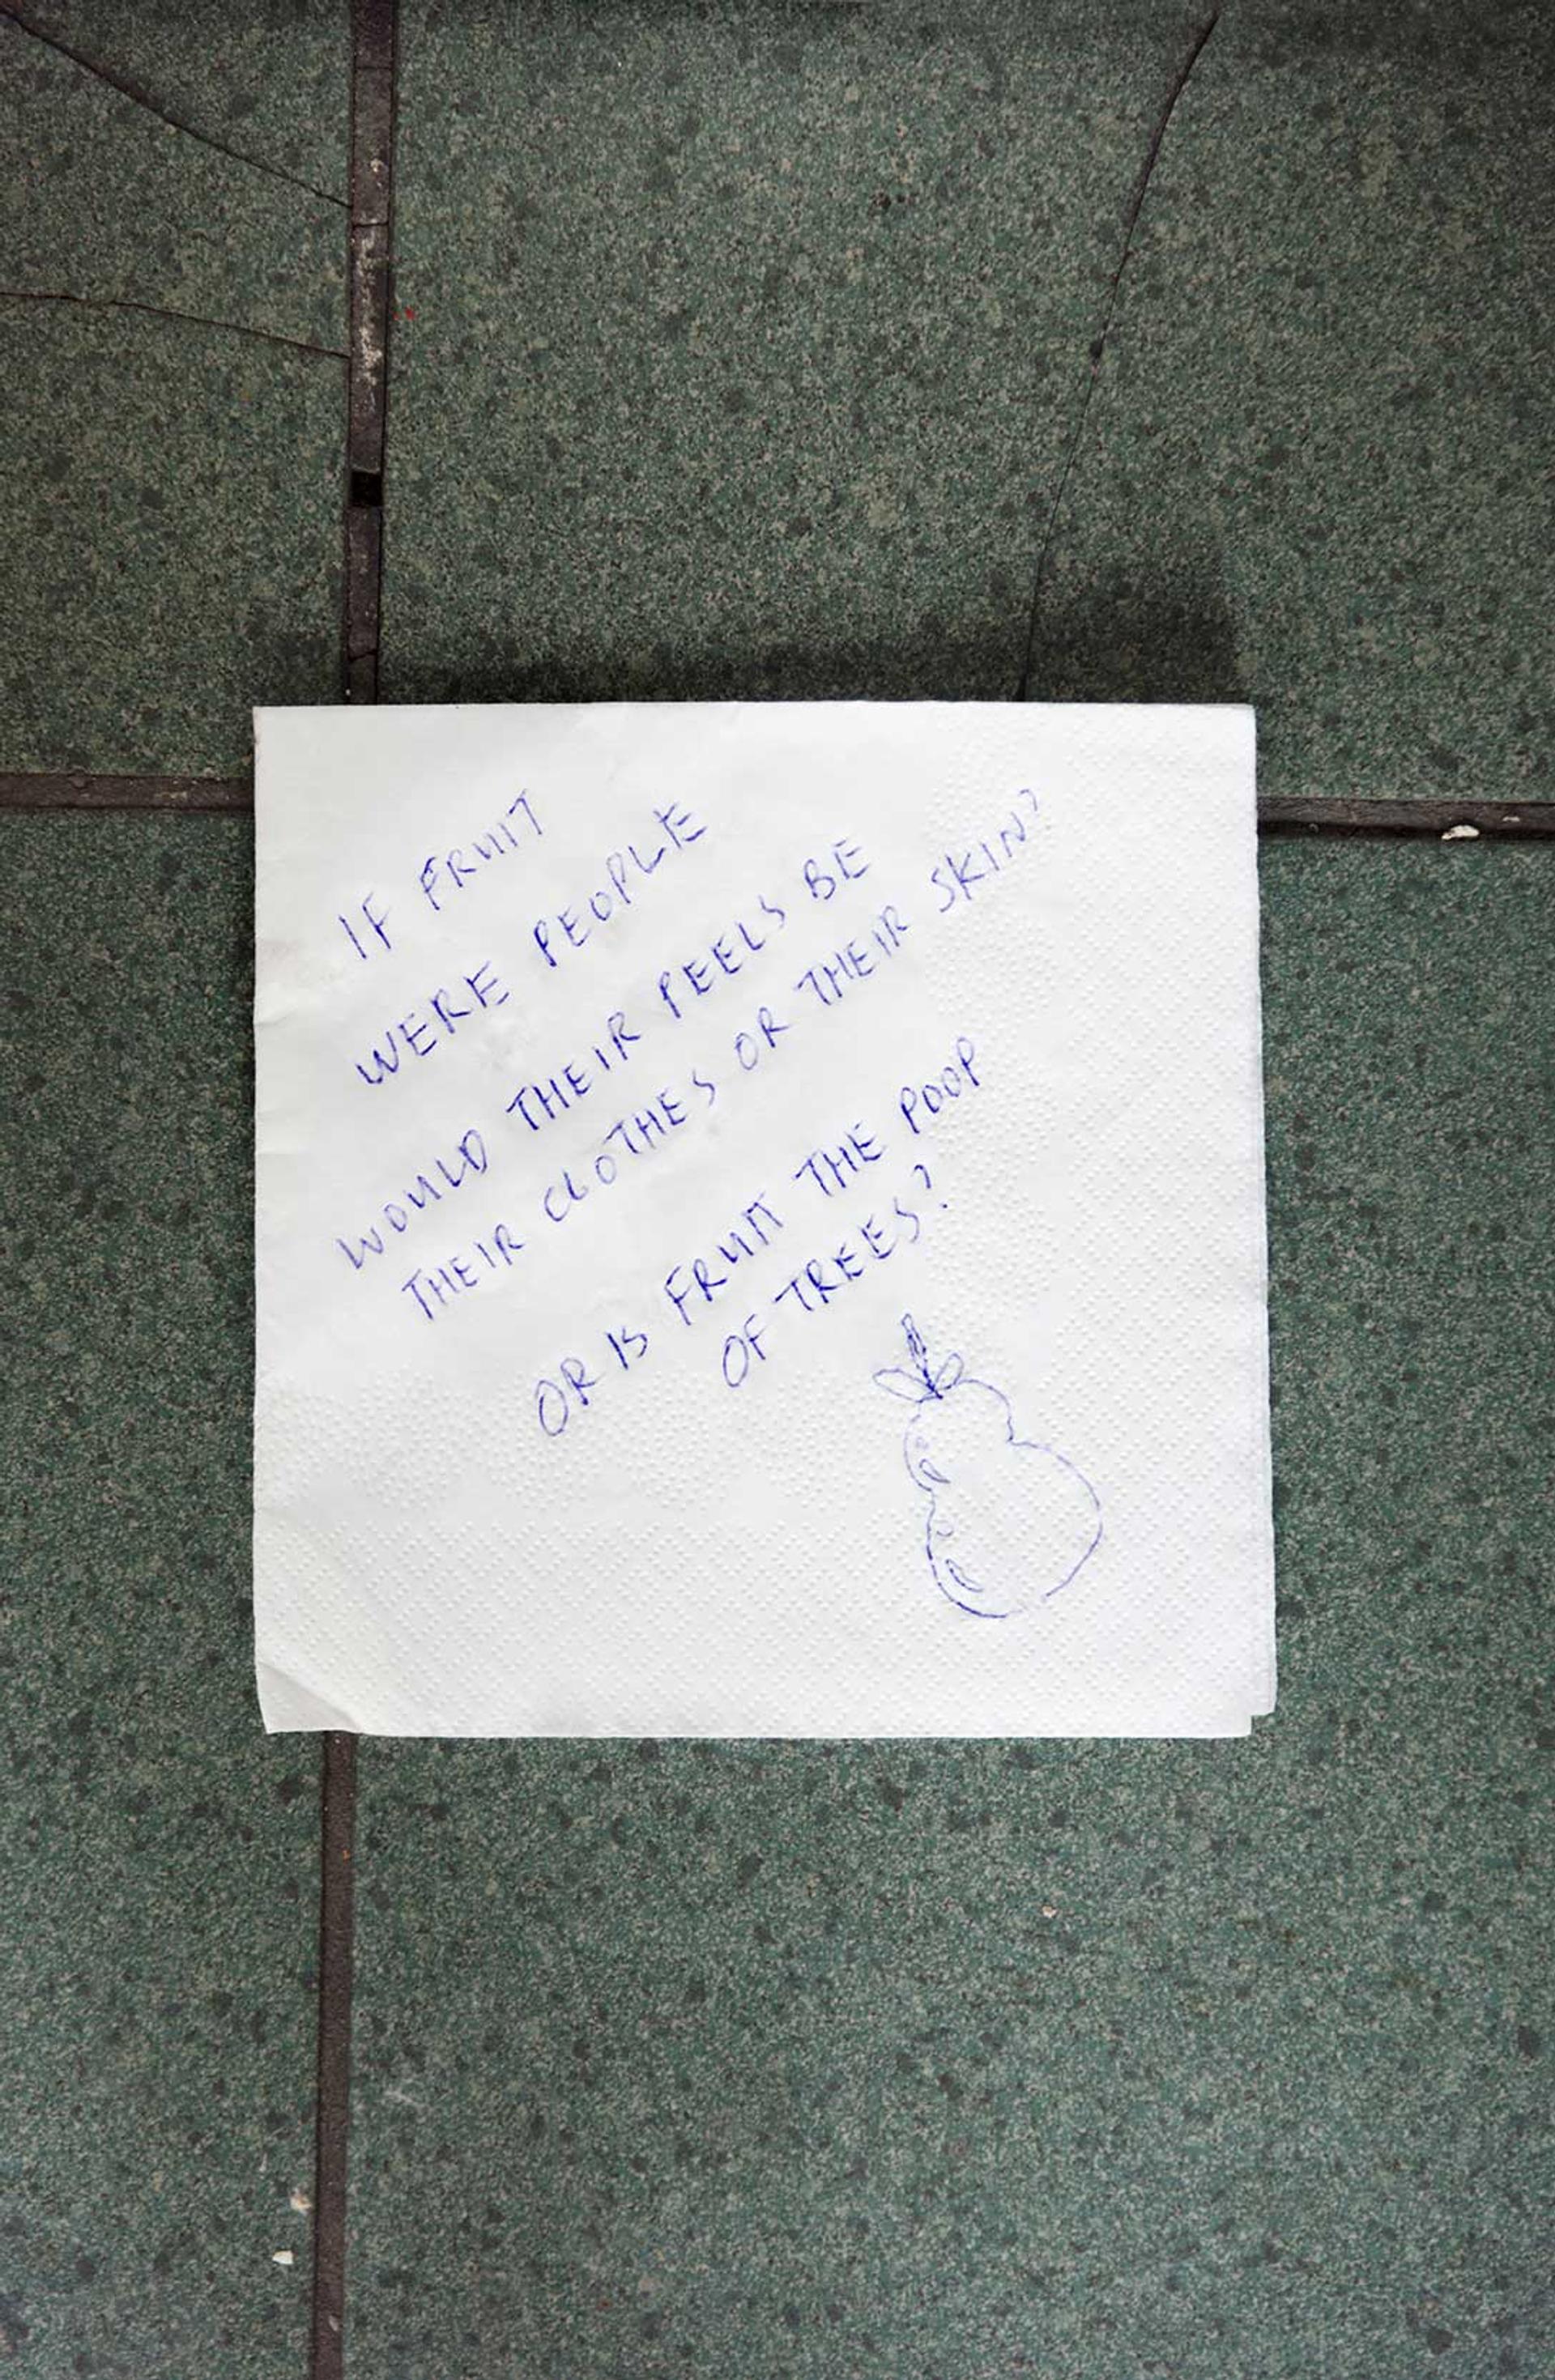 IF FRUIT
WERE PEOPLE
WOULD THEIR PEELS BE
THEIR CLOTHES OR THEIR SKIN?
OR IS FRUIT THE POOP
OF TREES?